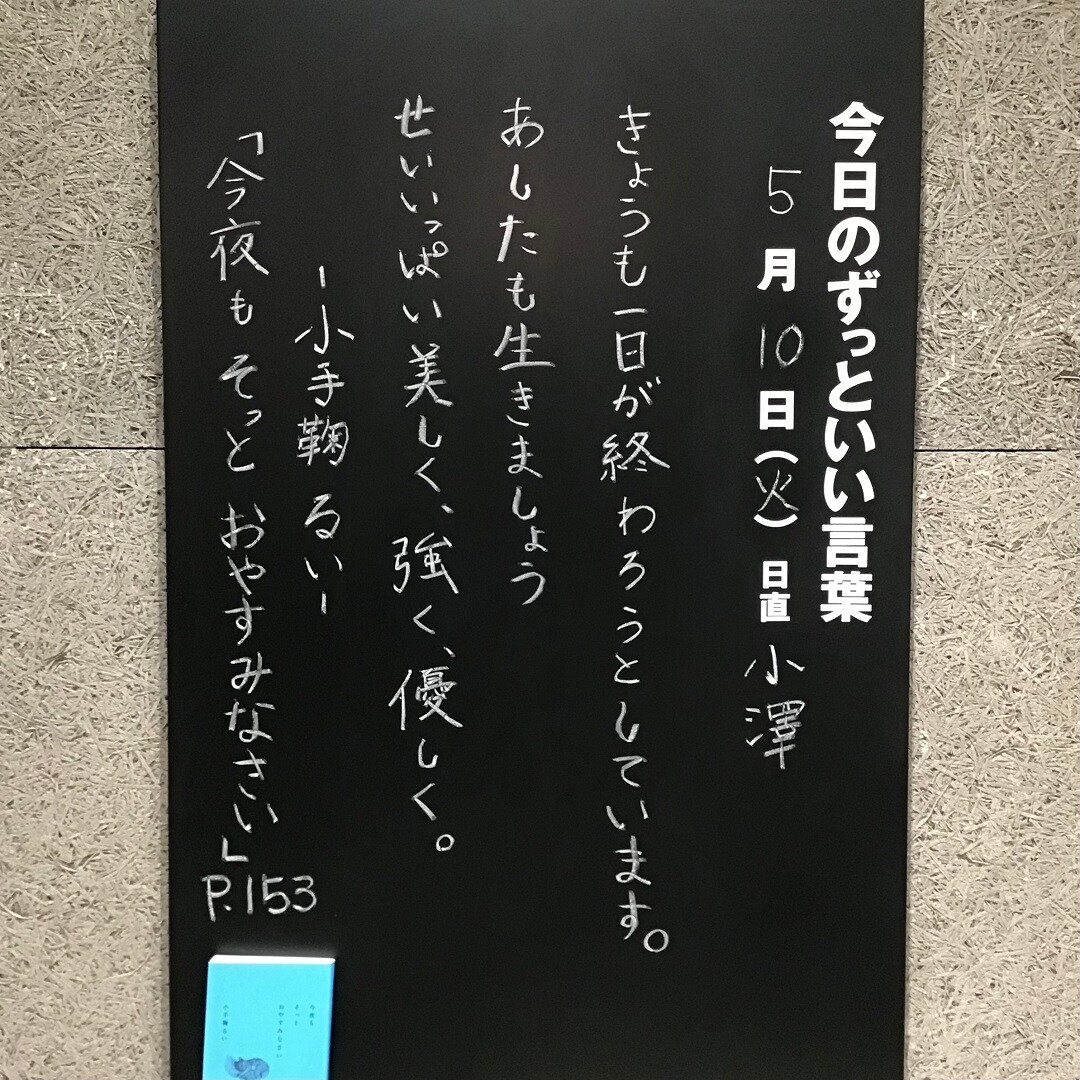 今日のずっといい言葉
5月10日(火) 日直 小澤
きょうも一日が終わろうとしています。
あしたも生きましょう
せいいっぱい美しく、強く、優しく。
ー小手鞠るいー
「今夜も そっと おやすみなさい」
P.153
今夜も
そっと
おやすみなさい
小手鞠るい